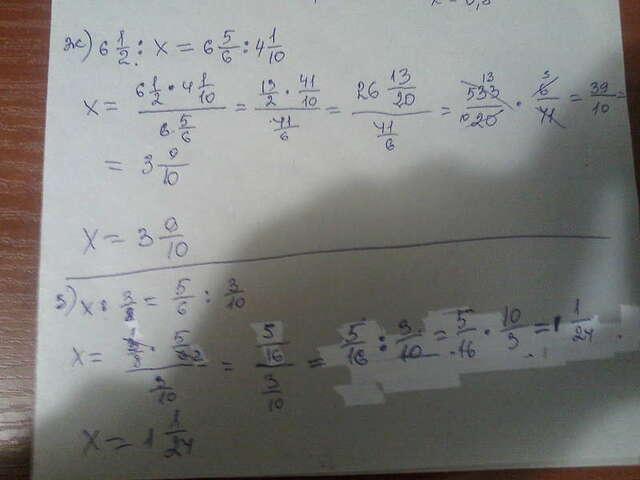 ж) 6 1/2 : x = 6 5/6 : 4 1/10
x = (6 1/2 · 4 1/10)/(6 5/6) = (13/2 · 41/10)/(41/6) = (26 13/20)/(41/6) = 533/20 · 6/41 = 39/10 =
= 3 9/10
x = 3 9/10
з) x : 3/8 = 5/6 : 3/10
x = = (5/16)/(3/10) = 5/16 : 3/10 = 5/16 · 10/3 = 1 1/24
x = 1 1/24